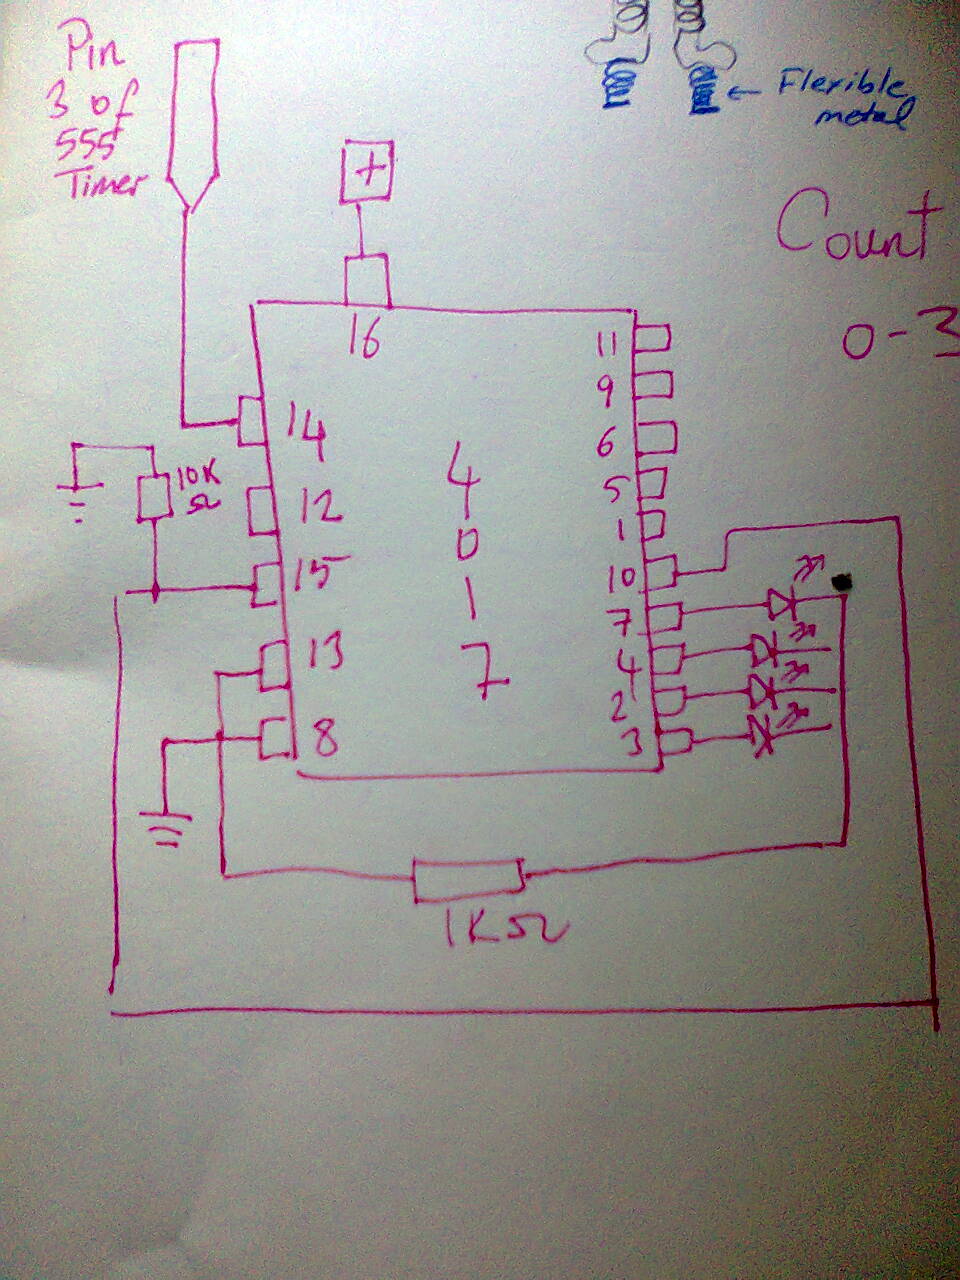 Pin
3 of
555
Timer
Flexible
metal
Count
0-3
+
16
11
14
9
6
10K
Ω
12
5
4
0
1
7
1
15
10
13
7
4
2
8
3
1KΩ